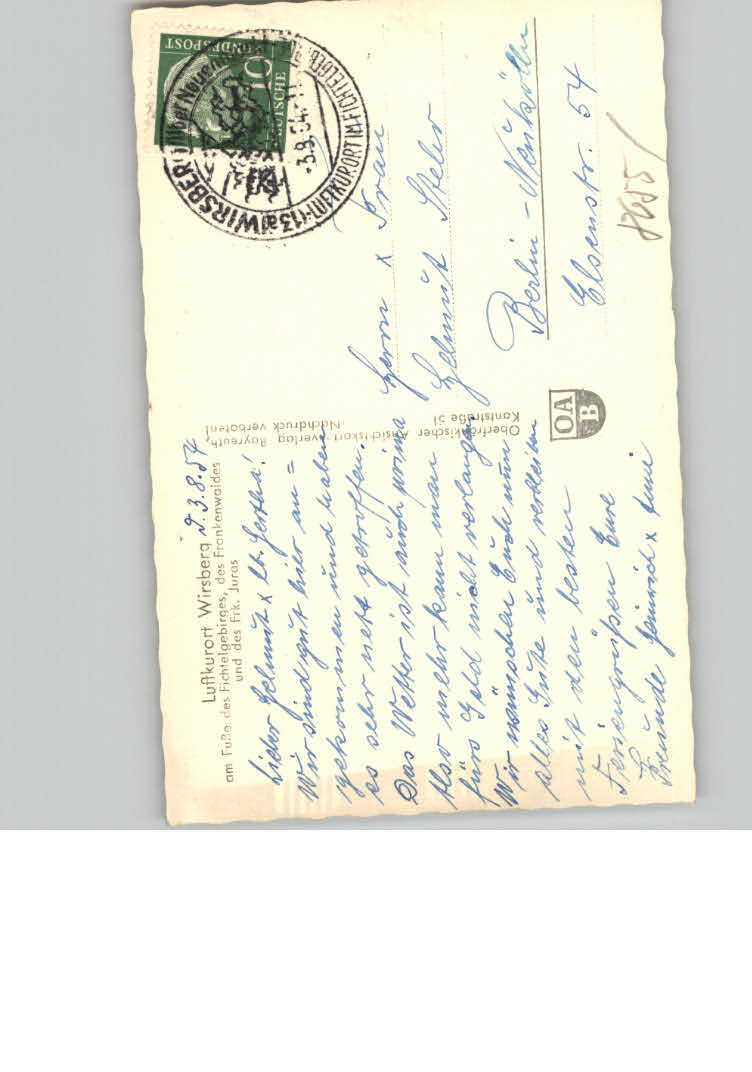 Luftkurort Wirsberg
am Fuße des Fichtelgebirges, des Frankenwaldes
und des Frk. Juras
d. 3.8.54
Lieber Helmut x lb. Gertha!
Wir sind gut hier an =
gekommen und haben
es sehr nett getroffen.
Das Wetter ist auch prima
Also mehr kann man
fürs Geld nicht verlangen
Wir wünschen Euch nun
alles Gute und verbleiben
mit den besten
Feriengrüßen Eure
Freunde Heinrich x
Oberfränkischer Ansichtskartenverlag Bayreuth,
Kantstraße 5¹
Nachdruck verboten!
OA
B
DEUTSCHE
BUNDESPOST
10
(13a) WIRSBERG über Neuenmarkt
LUFTKURORT IM FICHTELGEB.
-3.8.54-11
Herrn x Frau
Helmut Steler
Berlin - Neukölln
Elsenstr. 54
8655/